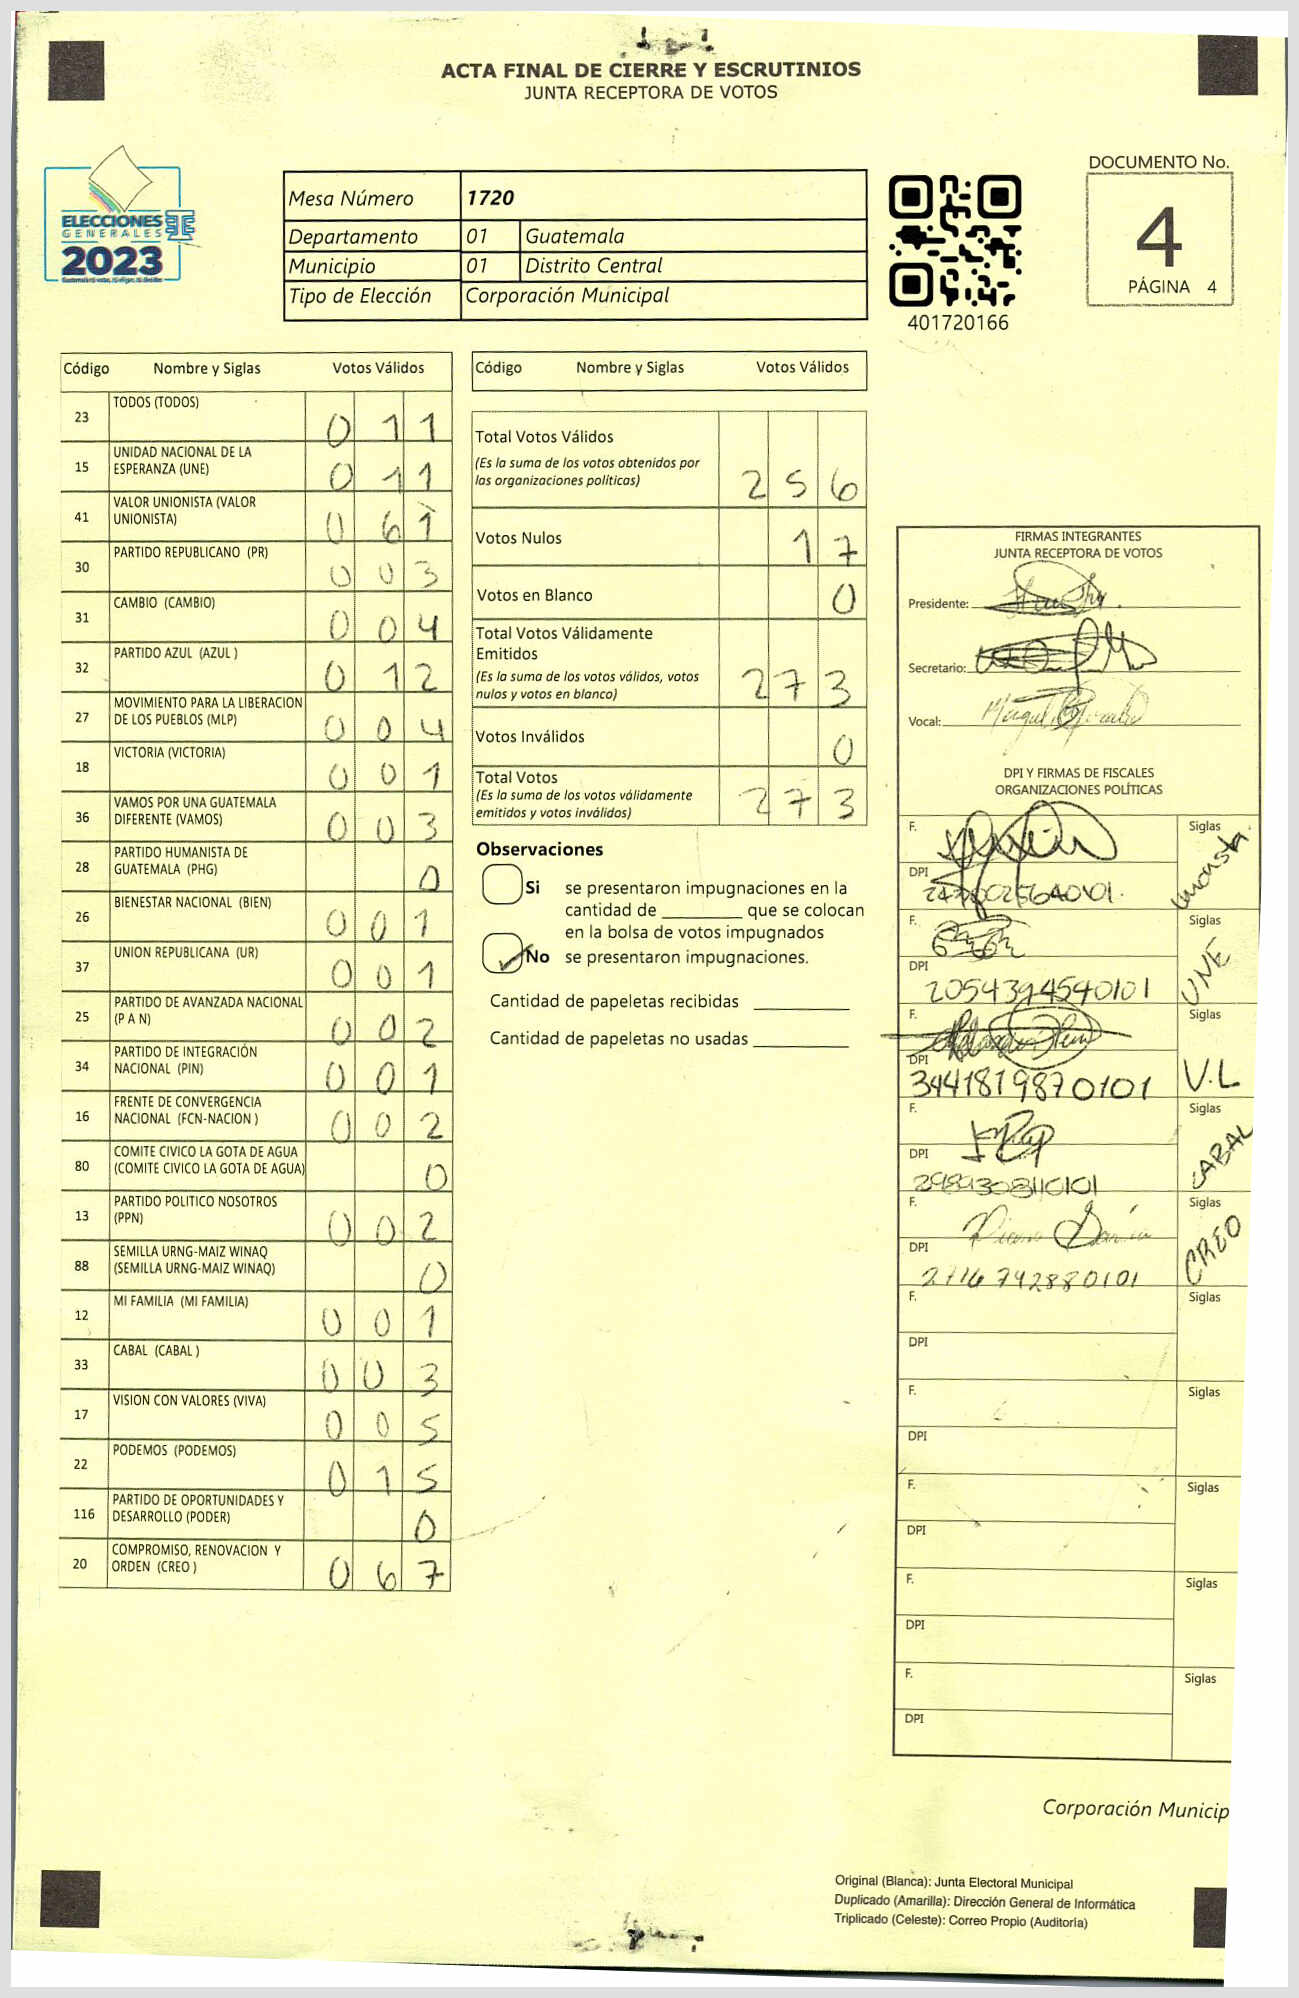 ACTA FINAL DE CIERRE Y ESCRUTINIOS
JUNTA RECEPTORA DE VOTOS
ELECCIONES
GENERALES
2023
Mesa Número 1720
Departamento 01 Guatemala
Municipio 01 Distrito Central
Tipo de Elección Corporación Municipal
401720166
DOCUMENTO No.
4
PÁGINA 4
Código Nombre y Siglas Votos Válidos
23 TODOS (TODOS) 0 1 1
15 UNIDAD NACIONAL DE LA
ESPERANZA (UNE) 0 1 1
41 VALOR UNIONISTA (VALOR
UNIONISTA) 0 6 1
30 PARTIDO REPUBLICANO (PR) 0 0 3
31 CAMBIO (CAMBIO) 0 0 4
32 PARTIDO AZUL (AZUL ) 0 1 2
27 MOVIMIENTO PARA LA LIBERACION
DE LOS PUEBLOS (MLP) 0 0 4
18 VICTORIA (VICTORIA) 0 0 1
36 VAMOS POR UNA GUATEMALA
DIFERENTE (VAMOS) 0 0 3
28 PARTIDO HUMANISTA DE
GUATEMALA (PHG) 0
26 BIENESTAR NACIONAL (BIEN) 0 0 1
37 UNION REPUBLICANA (UR) 0 0 1
25 PARTIDO DE AVANZADA NACIONAL
(P A N) 0 0 2
34 PARTIDO DE INTEGRACIÓN
NACIONAL (PIN) 0 0 1
16 FRENTE DE CONVERGENCIA
NACIONAL (FCN-NACION ) 0 0 2
80 COMITE CIVICO LA GOTA DE AGUA
(COMITE CIVICO LA GOTA DE AGUA) 0
13 PARTIDO POLITICO NOSOTROS
(PPN) 0 0 2
88 SEMILLA URNG-MAIZ WINAQ
(SEMILLA URNG-MAIZ WINAQ) 0
12 MI FAMILIA (MI FAMILIA) 0 0 1
33 CABAL (CABAL ) 0 0 3
17 VISION CON VALORES (VIVA) 0 0 5
22 PODEMOS (PODEMOS) 0 1 5
116 PARTIDO DE OPORTUNIDADES Y
DESARROLLO (PODER) 0
20 COMPROMISO, RENOVACION Y
ORDEN (CREO ) 0 6 7
Código Nombre y Siglas Votos Válidos
Total Votos Válidos
(Es la suma de los votos obtenidos por
las organizaciones políticas) 2 5 6
Votos Nulos 1 7
Votos en Blanco 0
Total Votos Válidamente
Emitidos
(Es la suma de los votos válidos, votos
nulos y votos en blanco) 2 7 3
Votos Inválidos 0
Total Votos
(Es la suma de los votos válidamente
emitidos y votos inválidos) 2 7 3
Observaciones
Si se presentaron impugnaciones en la
cantidad de ________ que se colocan
en la bolsa de votos impugnados
No se presentaron impugnaciones.
Cantidad de papeletas recibidas
Cantidad de papeletas no usadas
FIRMAS INTEGRANTES
JUNTA RECEPTORA DE VOTOS
Presidente:
Secretario:
Vocal: Miguel
DPI Y FIRMAS DE FISCALES
ORGANIZACIONES POLÍTICAS
F. Siglas
DPI
F. Siglas UNE
DPI 2054394540101
F. Siglas V.L
DPI 3441819870101
F. Siglas CABAL
DPI 2989308110101
F. Siglas CREO
DPI 2716742880101
F. Siglas
DPI
F. Siglas
DPI
F. Siglas
DPI
F. Siglas
DPI
F. Siglas
DPI
Corporación Municip
Original (Blanca): Junta Electoral Municipal
Duplicado (Amarilla): Dirección General de Informática
Triplicado (Celeste): Correo Propio (Auditoría)